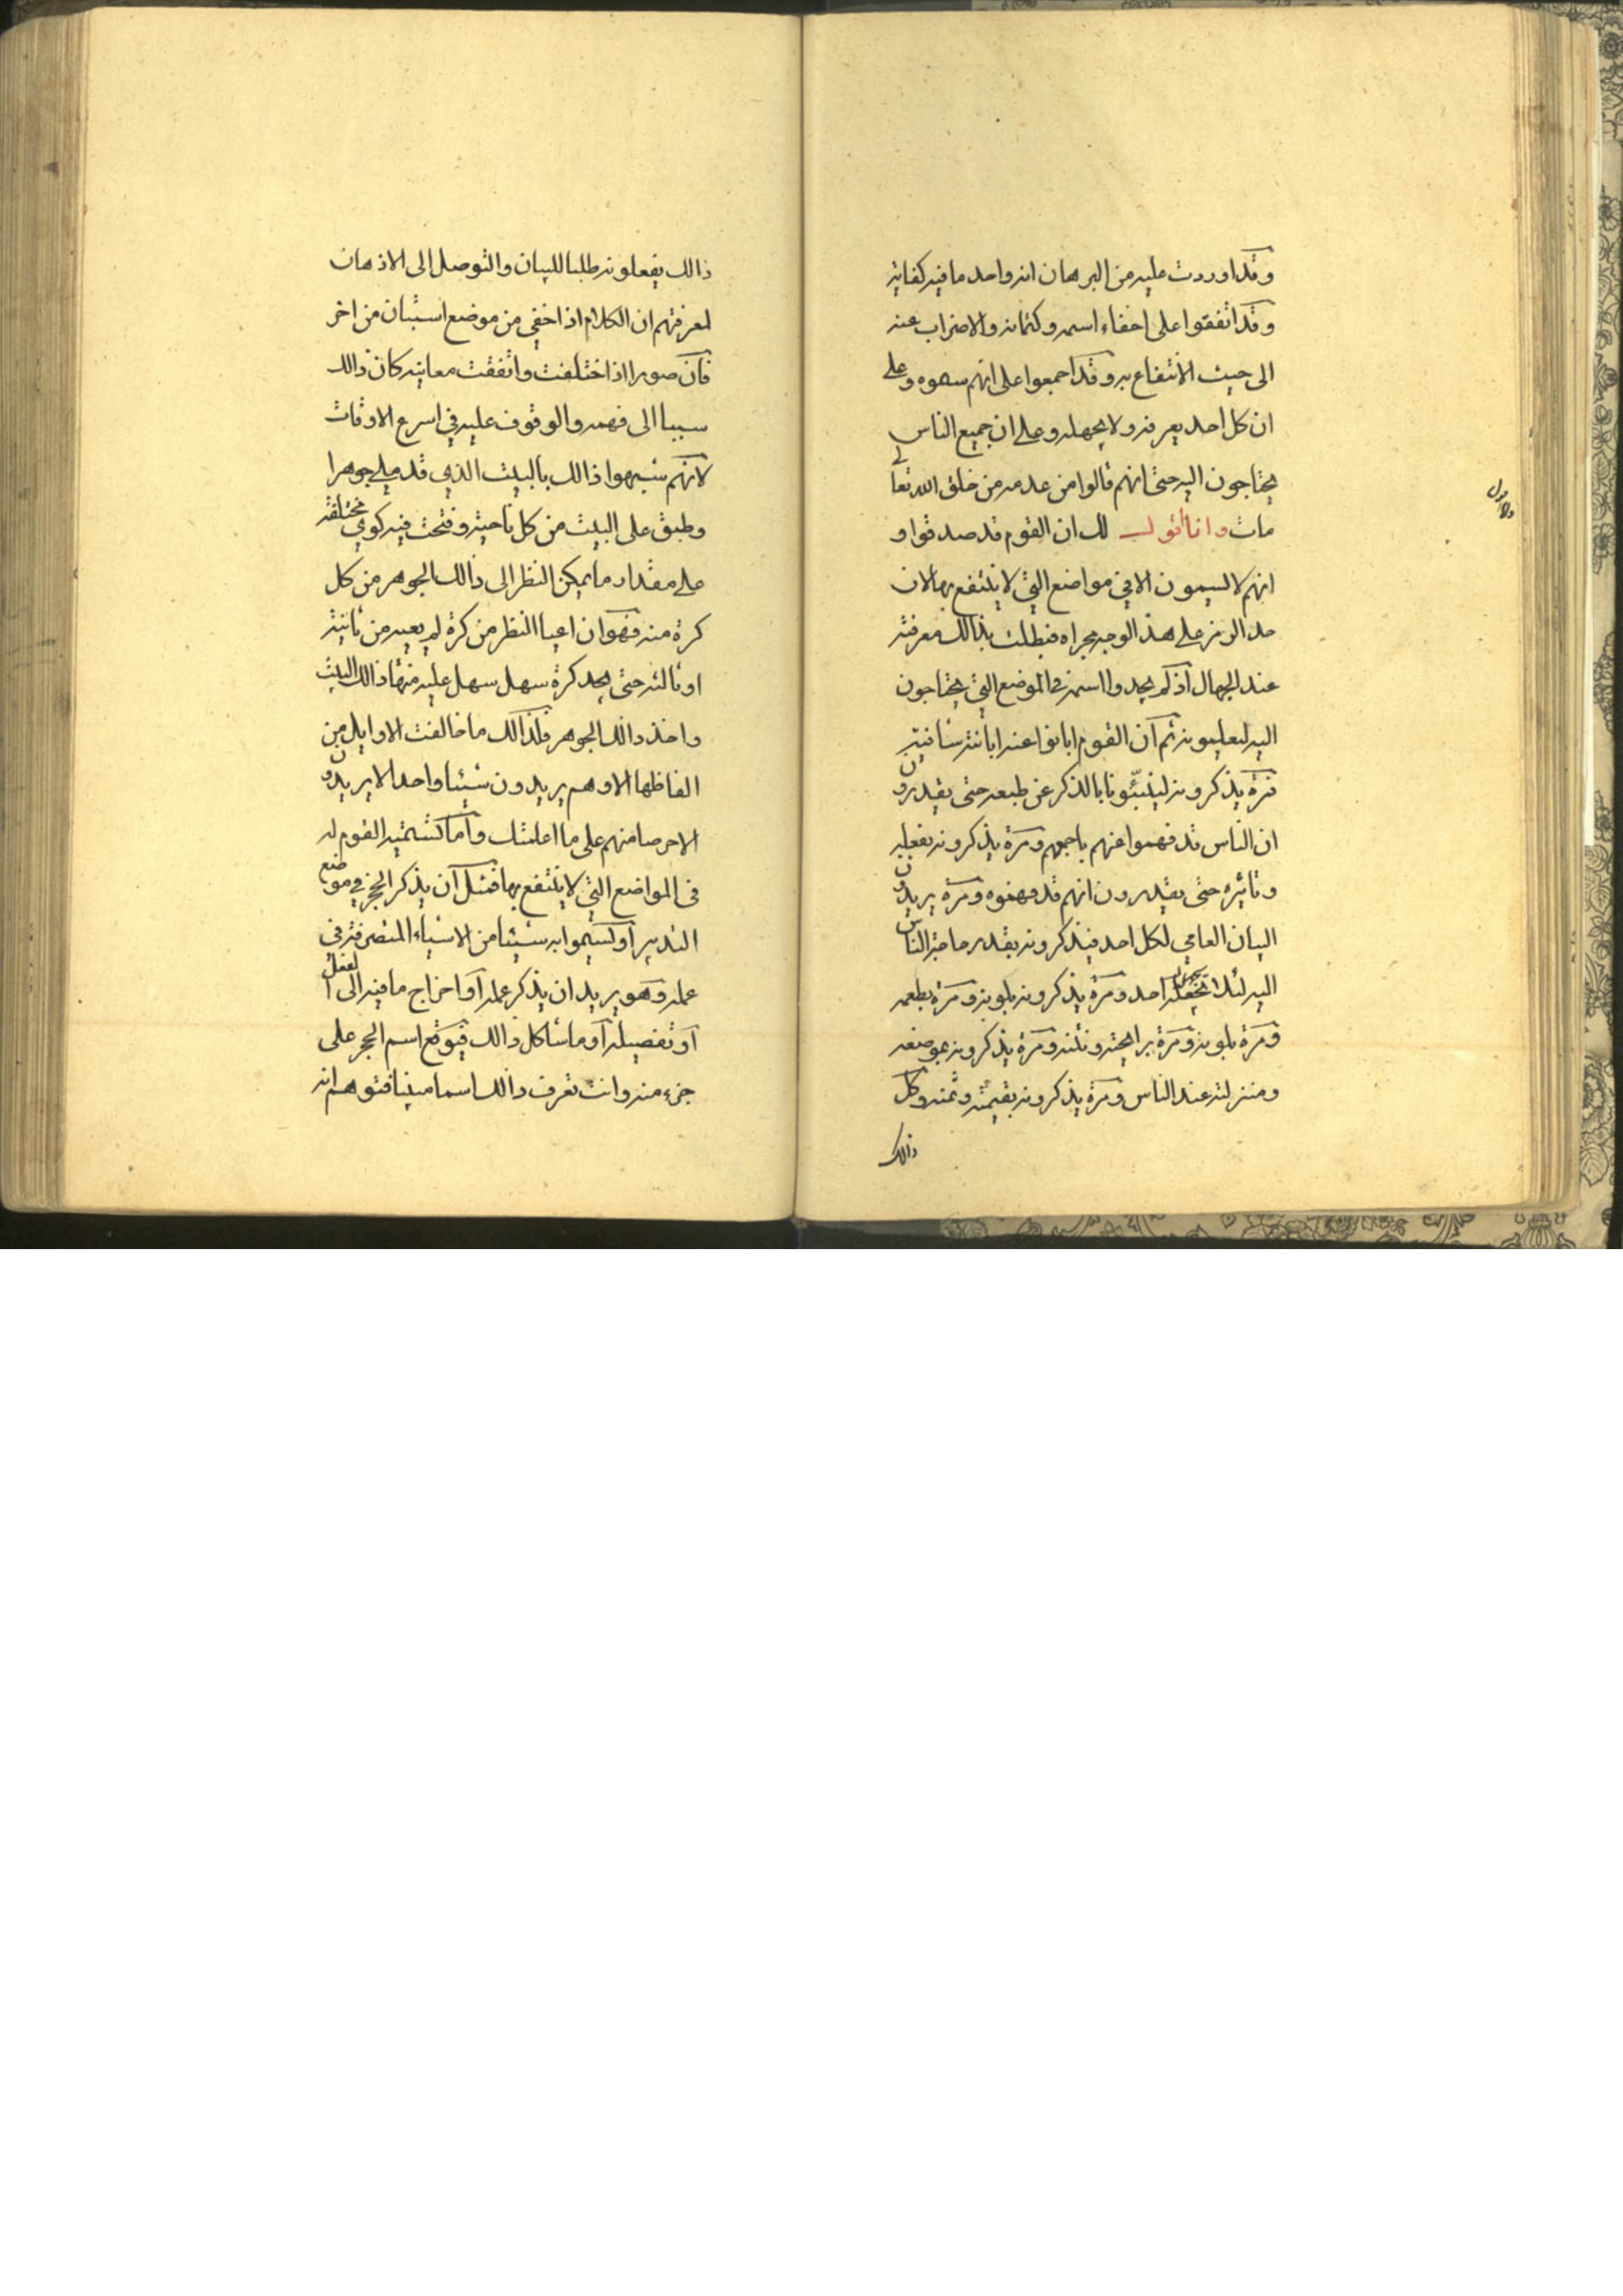 وقد اوردت عليه من البرهان انه واحد ما فيه كفاية
وقد اتفقوا على اخفاء اسمه وكتمانه والاضراب عنه
الى حيث الانتفاع به وقد اجمعوا على انهم سموه وعلى
ان كل احد يعرفه ولا يجهله وعلى ان جميع الناس
يحتاجون اليه حتى انهم قالوا من عدمه من خلق الله تعالى
مات وانا اقول لك ان القوم قد صدقوا و
انهم لا يسمون الا في مواضع التي لا ينتفع بها لان
حد الرمز على هذ الوجه مجراه فبطلت بذالك معرفته
عند الجهال اذ لم يجدوا اسمه في الموضع التي يحتاجون
اليه ليعلمونه ثم ان القوم ابانوا عنه ابانة شافية
فمرة يذكرونه لينبئونا بالذكر عن طبعه حتى يقدرون
ان الناس قد فهموا عنهم باجمعهم ومرة يذكرونه بفعله
وتاثيره حتى يقدرون انهم قد فهموه ومرة يريدون
البيان العامي لكل احد فيذكرونه بقدر حاجة الناس
اليه لئلا يجهله احد ومرة يذكرونه بلونه ومرة بطعمه
ومرة بلونه ومرة براحيته ونتنه ومرة يذكرونه بموضعه
ومنزلته عند الناس ومرة يذكرونه بقيمته وثمنه وكل
ذالك
ذالك يفعلونه طلبا للبيان والتوصل الى الاذهان
لمعرفتهم ان الكلام اذا خفي من موضع استبان من اخر
فان صورا اذا ختلفت واتفقت معانيه كان ذالك
سببا الى فهمه والوقوف عليه في اسرع الاوقات
لانهم شبهوا ذالك بالبيت الذي قد ملي جوهرا
وطبق على البيت من كل ناحية وفتحت فيه كوي مختلفة
على مقدار ما يمكن النظر الى ذالك الجوهر من كل
كرة منه فهو ان اعيا النظر من كرة لم يعيه من ثانية
او ثالثه حتى يجد كرة سهل سهل عليه منها ذالك البيت
واخذ ذالك الجوهر فلذالك ما خالفت الاوايل من
الفاظها الا وهم يريدون شيئا واحدا لا يريدون
الا حرصا منهم على ما اعلمتك واما كتسمية القوم له
في المواضع التي لا ينتفع بها فمثل ان يذكر الحجر في موضع
التدبير او يسموا به شيئا من الاشياء المتصرفة في
عمله وهو يريد ان يذكر عمله او اخراج ما فيه الى الفعل
او تفصيله او ما شاكل ذالك فيوقع اسم الحجر على
جزء منه وانت تعرف ذالك اسما مبينا فتوهم انه